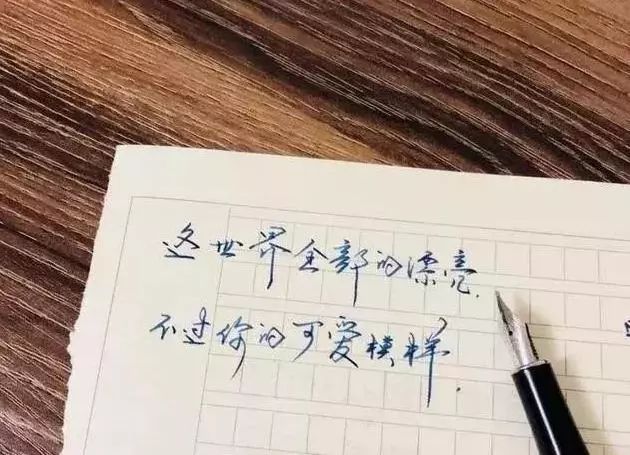 这世界全部的漂亮.
不过你的可爱模样.